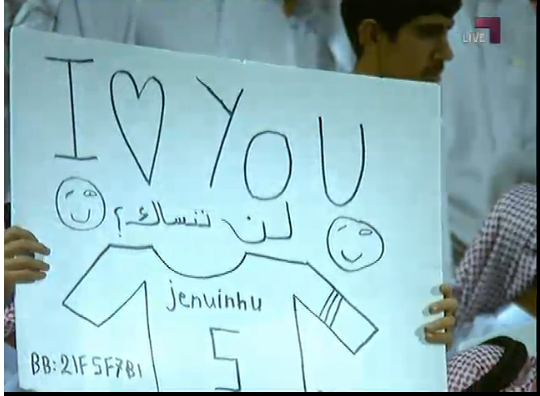 LIVE
I ♡ YOU
لن ننساك؟
jenuinhu
5
BB: 21F5F7B1